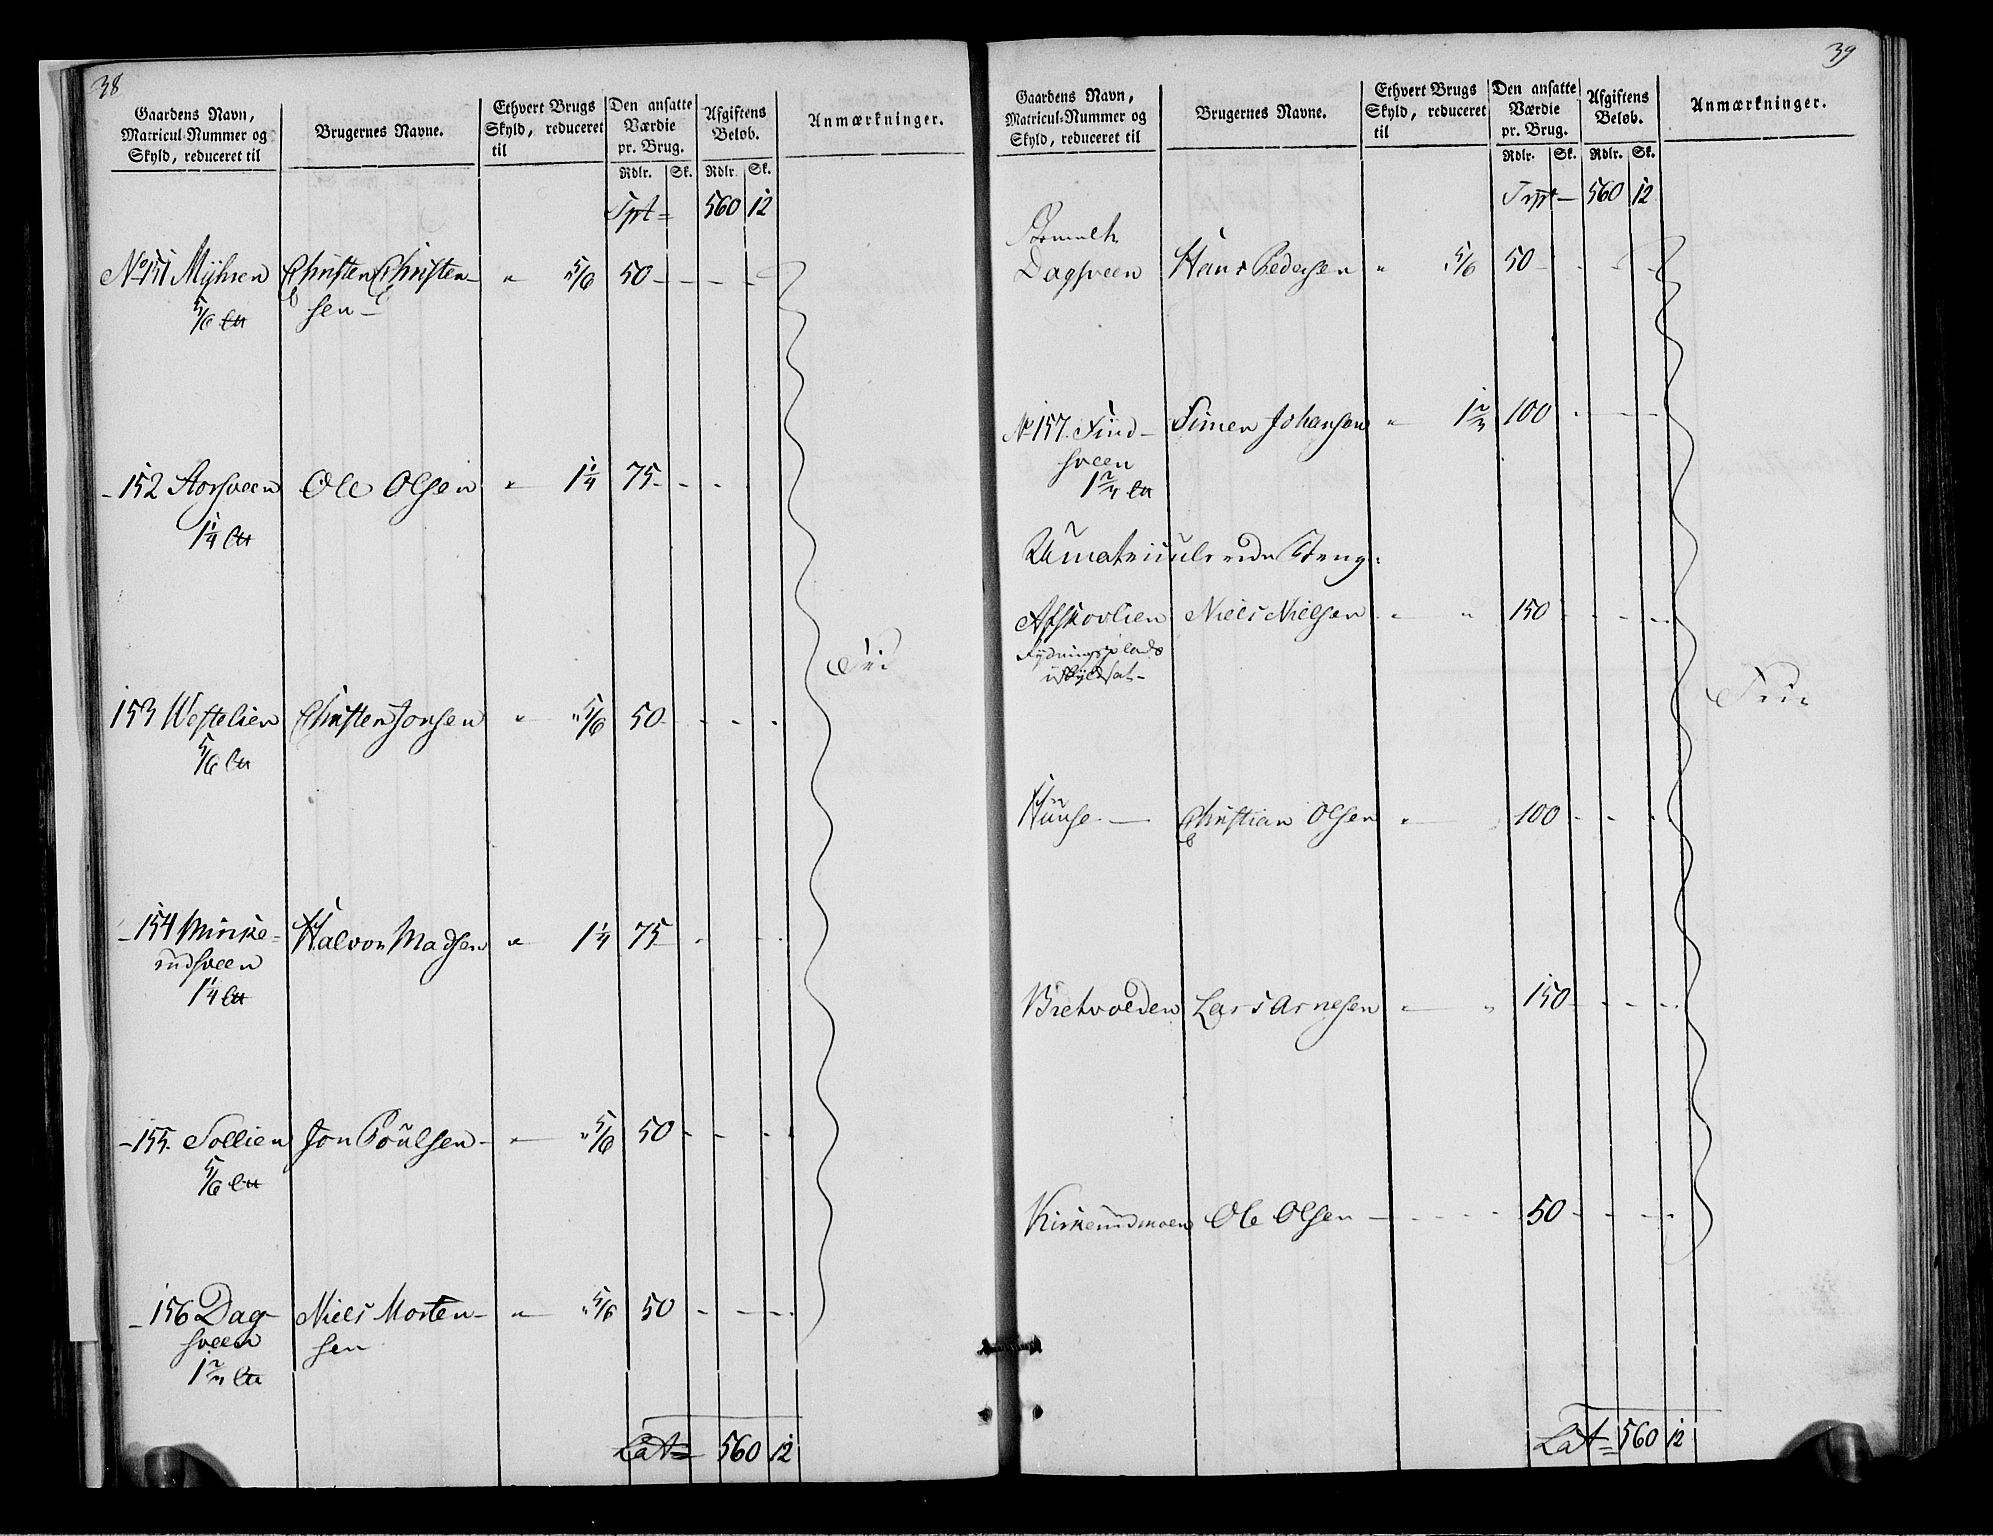 38
Gaardens Navn, Matricul-Nummer og Skyld, reduceret til
Brugernes Navne.
Ethvert Brugs Skyld, reduceret til
Den ansatte Værdie pr. Brug.
Afgiftens Beløb.
Anmærkninger.
Rdlr. Sk. Rdlr. Sk.
Tpt= 560 12
No 151 Myhren Christen Christen- " 5/6 50 - - - -
5/6 sen-
- 152 Aasveen Ole Olsen " 1 1/4 75 - - -
1 1/4
153 Westlien Christen Jonsen " " 5/6 50 - - - -
5/6
Frie
- 154 Minke= Halvon Madsen " 1 1/4 75 - - -
rudsveen
1 1/4
- 155. Sollien Jon Poulsen - " " 5/6 50 - - - -
5/6
- 156 Dag- Niels Morten- " " 5/6 50 - - - -
sveen sen
1 2/3
Lat= 560 12
39
Gaardens Navn, Matricul-Nummer og Skyld, reduceret til
Brugernes Navne.
Ethvert Brugs Skyld, reduceret til
Den ansatte Værdie pr. Brug.
Afgiftens Beløb.
Anmærkninger.
Rdlr. Sk. Rdlr. Sk.
Trpt- 560 12
Dagsveen Hans Pedersen " 5/6 50 - - - -
No 157. Find- Simen Johansen " 1 2/3 100 - - - -
sveen
1 2/3
Umatriculerede Steng:
Afskovlien Niels Nielsen " " 150 - - - -
Rydningsplads
uskyldsat-
Frie
Huuse - Christian Olsen " 100 - - - -
Bretvolden Lars Arnesen " " 150 - - - -
Kirkerudmoen Ole Olsen - - - - 50 - - - -
Lat= 560 12